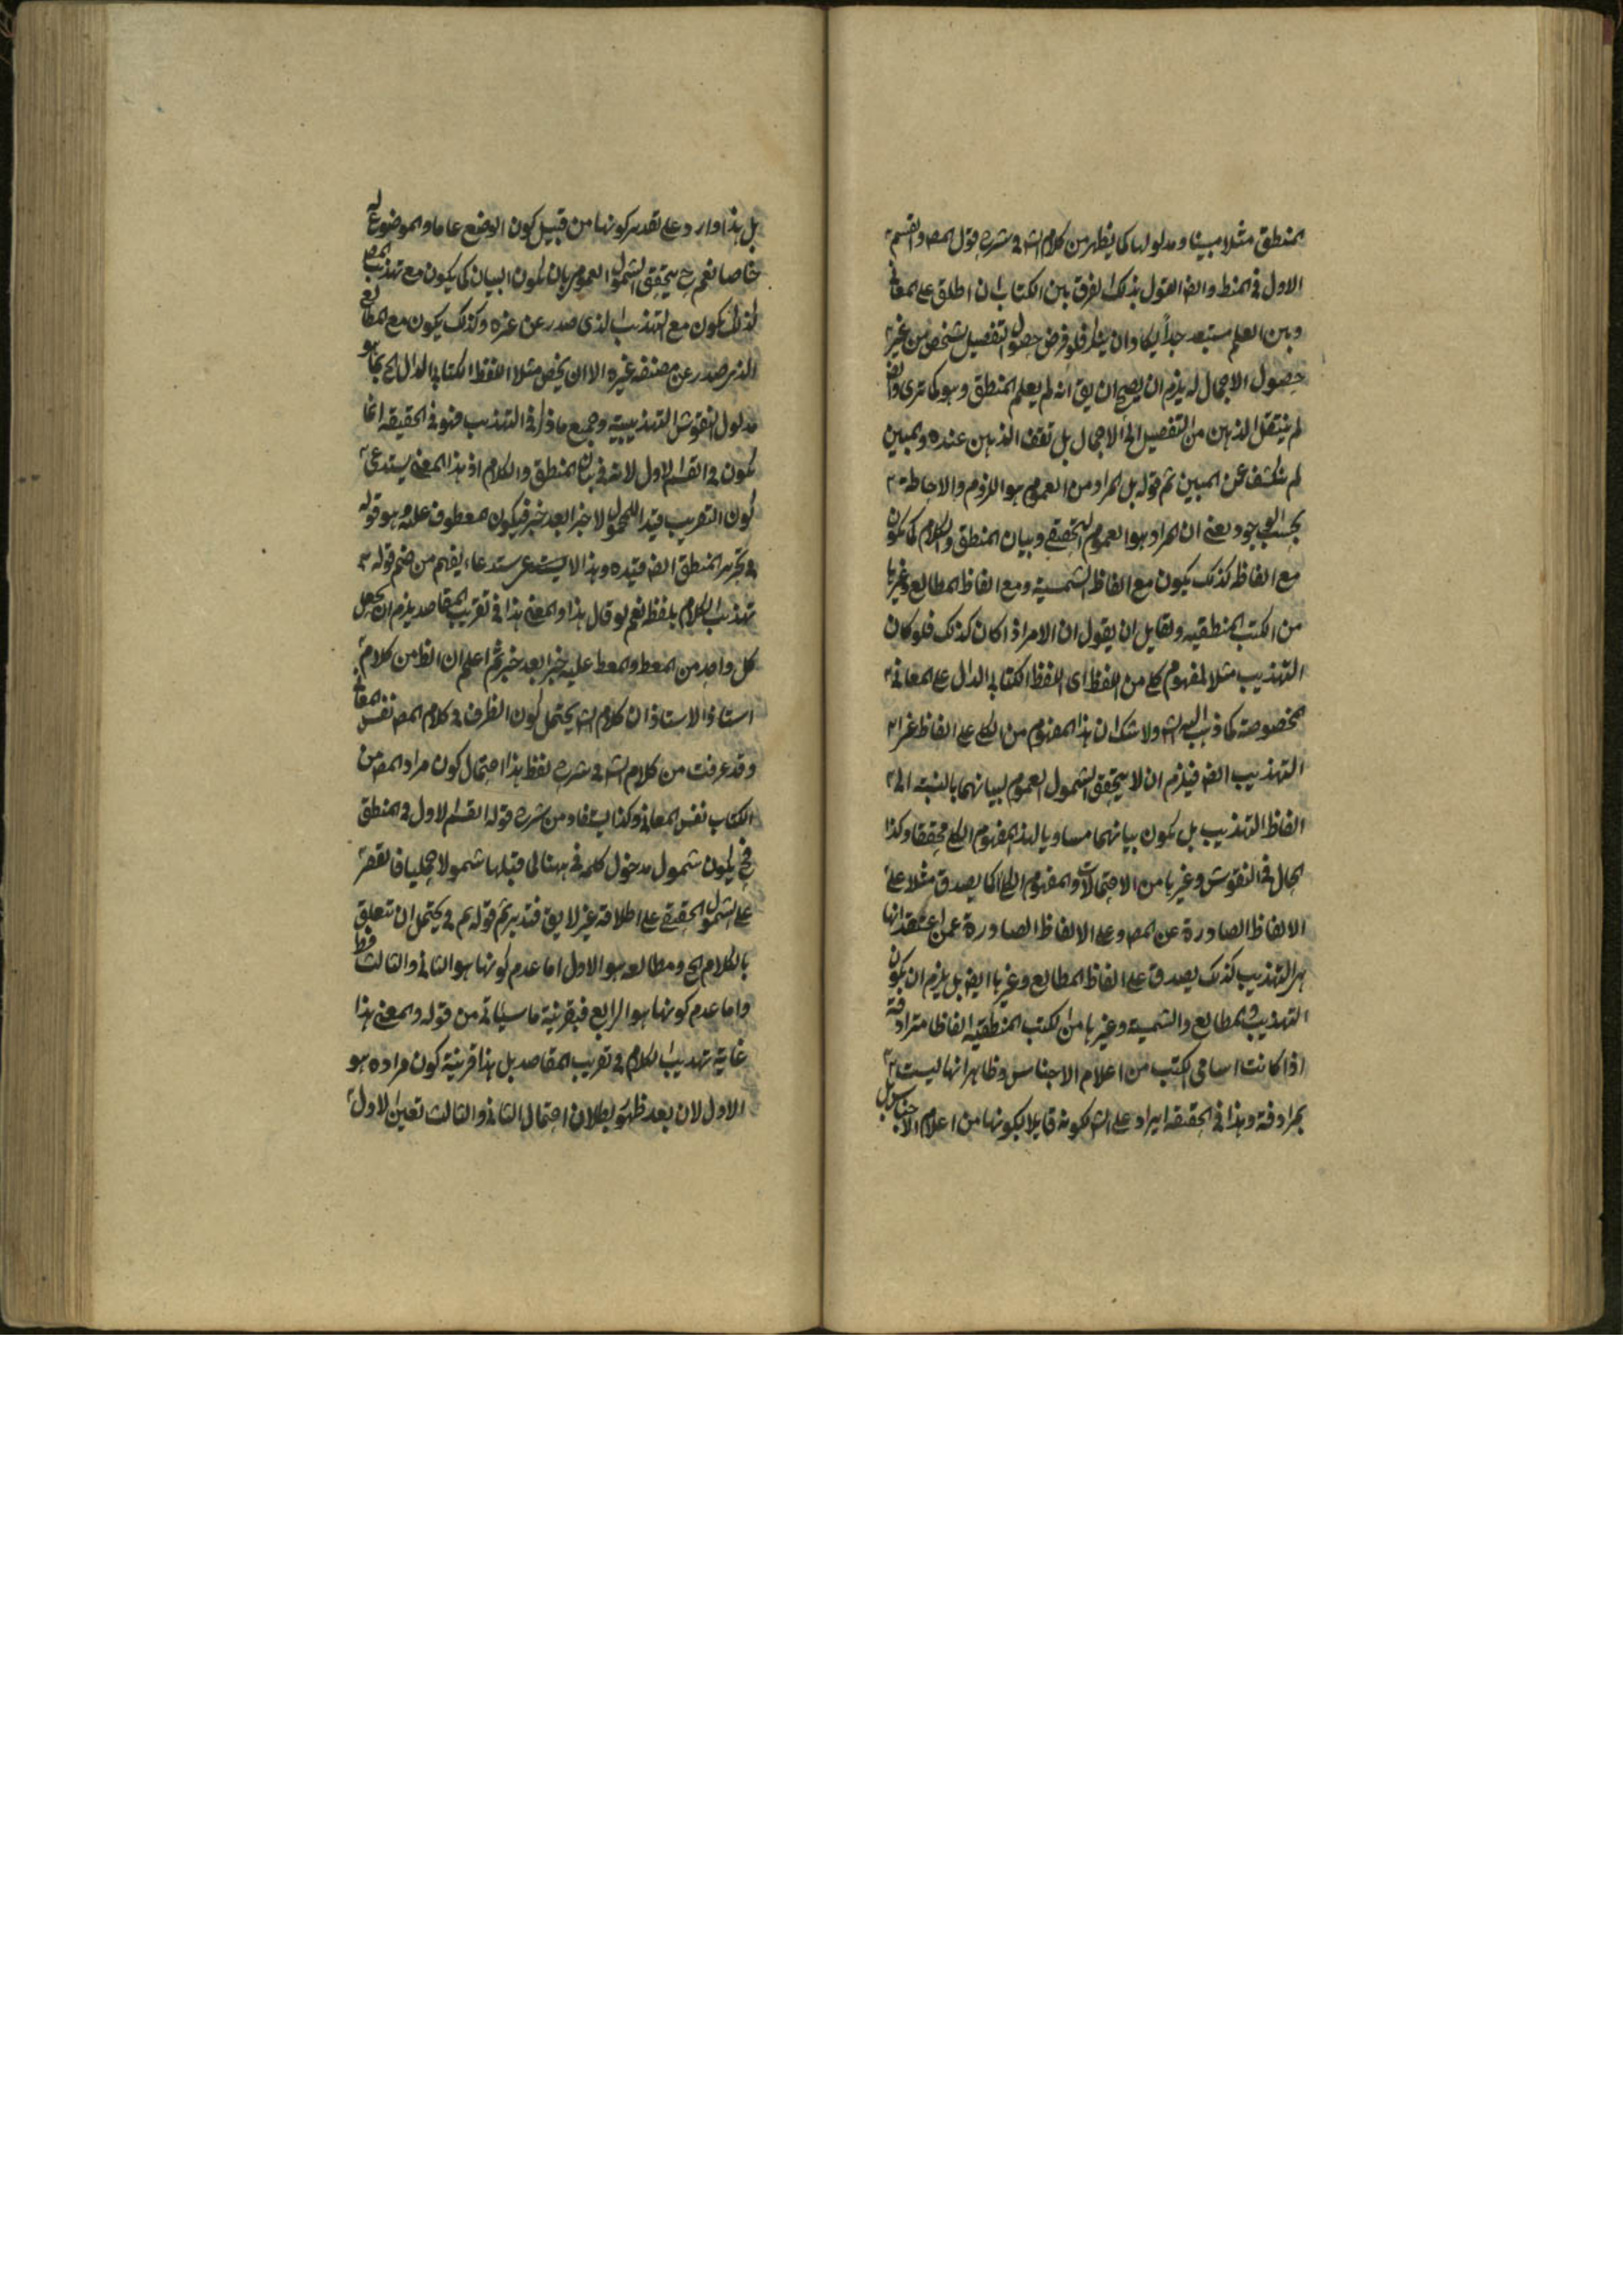 المنطق مثلا مبينا ومدلولها كما يظهر من كلام الشه فى شرح قول المصه والقسم
الاول فى المنط وايضه القول بذلك الفرق بين الكتاب ان اطلق على المعانى
وبين العلم مستبعد جداً ليكاد ان فلو فرض حصول التفصيل لشخص من غير
حصول الاجمال له يلزم ان يصح ان يق انه لم يعلم المنطق وهو كما ترى وايضه
لم ينتقل الذهن من التفصيل الى الاجمال بل تقف الذهن عنده والمبين
لم ينكشف عن المبين ثم قوله بل المراد من العموم هو اللزوم والاحاطة
بحسب الوجود يعنى ان المراد هو العموم التحققى وبيان المنطق والكلام كما يكون
مع الفاظه كذلك يكون مع الفاظ الشمسية ومع الفاظ المطالع وغيرها
من الكتب المنطقيه ولقايل ان يقول ان الامر اذا كان كذلك فلو كان
التهذيب مثلا لمفهوم كلى من اللفظ اى اللفظ الكتابى الدال على المعانى
المخصوصة كما ذهب اليه الشه ولا شك ان هذا المفهوم من الكلى على الفاظ غير
التهذيب ايضه فيلزم ان لا يتحقق الشمول العموم لبيانهما بالنسبة الى
الفاظ التهذيب بل يكون بيانهما مساويا لهذا المفهوم الكلى محققا وكذا
الحال فى النقوش وغيرها من الاحتمالات والمفهوم الكلى كما يصدق مثلا على
الالفاظ الصادرة عن المصه وعلى الالفاظ الصادرة عمن اعتقد انها
التهذيب كذلك يصدق على الفاظ المطالع وغيرها ايضه بل يلزم ان يكون
التهذيب والمطالع والشمسية وغيرها من الكتب المنطقيه الفاظا مترادفة
اذا كانت اسامى الكتب من اعلام الاجناس وظاهر انها ليست
بمرادفة وهذا فى الحقيقه ايراد على الشه لكونه قايلا بكونها من اعلام الاجناس بل
بل هذا وارد على تقدير كونها من قبيل كون الوضع عاما والموضوع له
خاصا نعم ح يتحقق الشمول العموم بان يكون البيان كما يكون مع تهذيب المصه
كذلك يكون مع التهذيب الذى صدر عن غيره وكذلك يكون مع المطالع
الذى صدر عن مصنفه غيره الا ان يخص مثلا اللفظ الكتابى الدال الخ بما هو
مدلول النقوش التهذيبيه وجميع ما ذكر فى التهذيب فهو فى الحقيقه انما
يكون فى القسم الاول لانه فى بيان المنطق والكلام اذ هذا المعنى يستدعى
كون التقريب قيدا للمحمول لا خبرا بعد خبر فيكون معطوف عليه وهو قوله
فى تحرير المنطق ايضه قيده وهذا الاستدعاء يفهم من ضم قوله
تهذيب الكلام بلفظ نعم لو قال هذا والمعنى هذا فى تقريب المقاصد يلزم ان يجعل
كل واحد من المعط والمعط عليه خبرا بعد خبر ثم اعلم ان الظ من كلام
استاذ الاستاذ ان كلام الشه يحتمل كون الظرف فى كلام المصه نفس المعانى
وقد عرفت من كلام الشه فى شرح لفظ هذا احتمال كون مراد المصه من
الكتاب نفس المعانى وكذا يستفاد من شرح قوله القسم الاول فى المنطق
فح يكون شمول مدخول كلمه فى ههنا لما قبلها شمولا جمليا فالقصر
على الشمول الحقيقى على اطلاقه غير لايق فتدبر ثم قوله ثم فى يحتمل ان تتعلق
بالكلام الخ ومطالعه هو الاول اما عدم كونها هو الثانى والثالث فظ
واما عدم كونها هو الرابع فبقرينة ما سياتى من قوله والمعنى هذا
غاية تهذيب الكلام فى تقريب المقاصد بل هذا قرينة كون مراده هو
الاول لان بعد ظهور بطلان احتمال الثانى والثالث تعين الاول